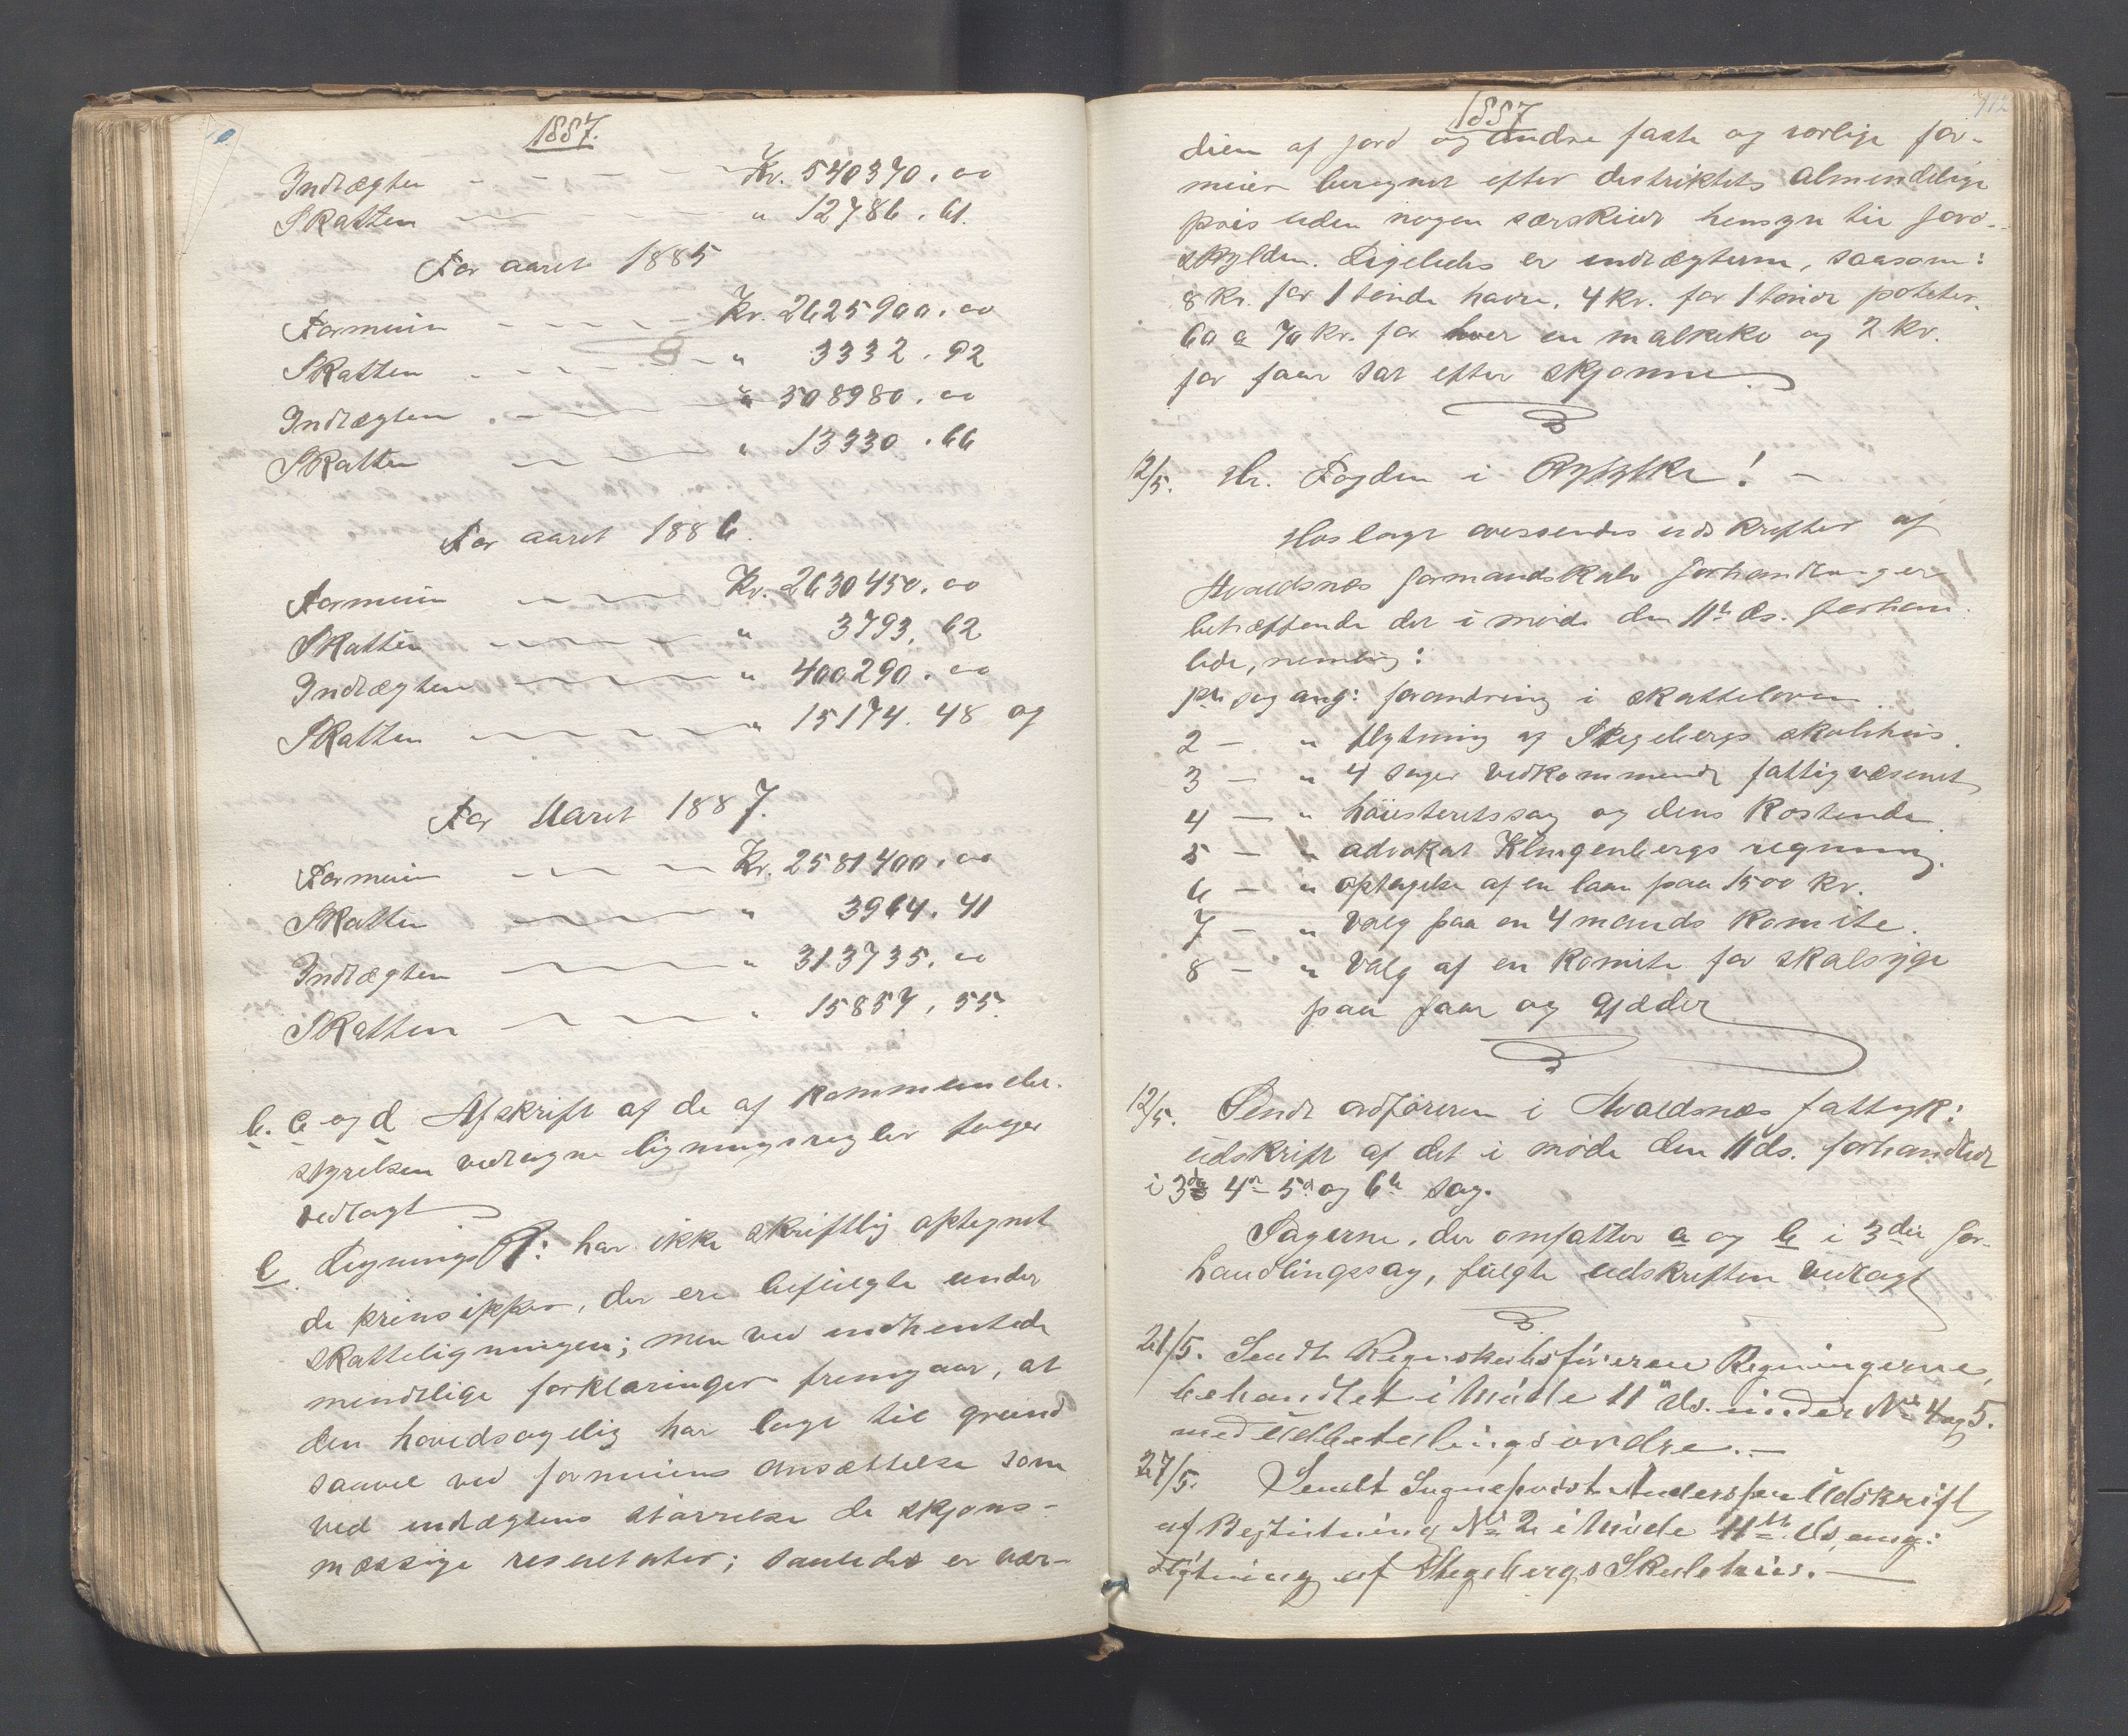 1887.
Indtægten Kr. 540370.00
Skatten " 12786.61.
For aaret 1885
Formuin Kr. 2625900.00
Skatten " 3332.92
Indtægten " 508980.00
Skatten " 13330.66
For aaret 1886.
Formuin Kr. 2630450.00
Skatten " 3793.62
Indtægten " 400290.00
Skatten " 15174.48 og
For Aaret 1887.
Formuin Kr. 2581400.00
Skatten " 3964.41
Indtægten " 313735.00
Skatten " 15857,55.
b. c og d Afskrift af de af kommunebe-
styrelsen vedtagne ligningsregler følger
vedlagt
e. Lignings har ikke skriftlig optegnet
de prinsipper, der ere befulgte under
skatteligningen; men ved indhentede
mundtlige forklaringer fremgaar, at
den hovedsagelig har lagt til grund
saavel ved formuens ansættelse som
ved indtægtens størrelse de skjøns-
mæssige resultater; saaledes er vær-
1887
112
dien af jord og andre faste og rørlige for-
muer beregnet efter distriktets almindelige
pris uden nogen særskilt hensyn til jord-
skylden. Ligeledes er indtægterne, saasom:
8 kr. for 1 tønde havre, 4 kr. for 1 tønde poteter,
60 a 70 kr. for hver en malkeko og 2 kr.
for faar sat efter skjønne.
12/5. Hr. Fogden i Ryfylke! –
Hoslagt oversendes udskrifter af
Avaldsnes formandskabs forhandlinger
betræffende det i møde den 11te ds. forhan-
lede, nemlig:
1ste sag ang: forandring i skatteloven
2 – " flytning af Stegebergs skolehus.
3 – " 4 sager vedkommende fattigvæsenet
4 – " høiesteretssag og dens kostende.
5 – " advokat Klingenbergs regning.
6 – " optagelse af en laan paa 1500 kr.
7 – " valg paa en 4 mands komite.
8 – " valg af en komite for skabsyge
paa faar og gjeder
12/5. Sendt ordføreren i Avaldsnes fattigk:
udskrift af det i møde den 11 ds. forhandlede
i 3de 4de 5te og 6te sag.
Sagerne, der omfatter a og b i 3die for-
handlingssag, fulgte udskriften vedlagt
21/5. Sendt Regnskabsføreren Regningerne,
behandlet i Møde 11te ds. under No 4 og 5.
med Udbetalingsordre. –
27/5. Sendt Sogneprest Anderssen Udskrift
af Beslutning No 2 i Møde 11te ds, ang:
Flytning af Stegebergs Skolehus. –